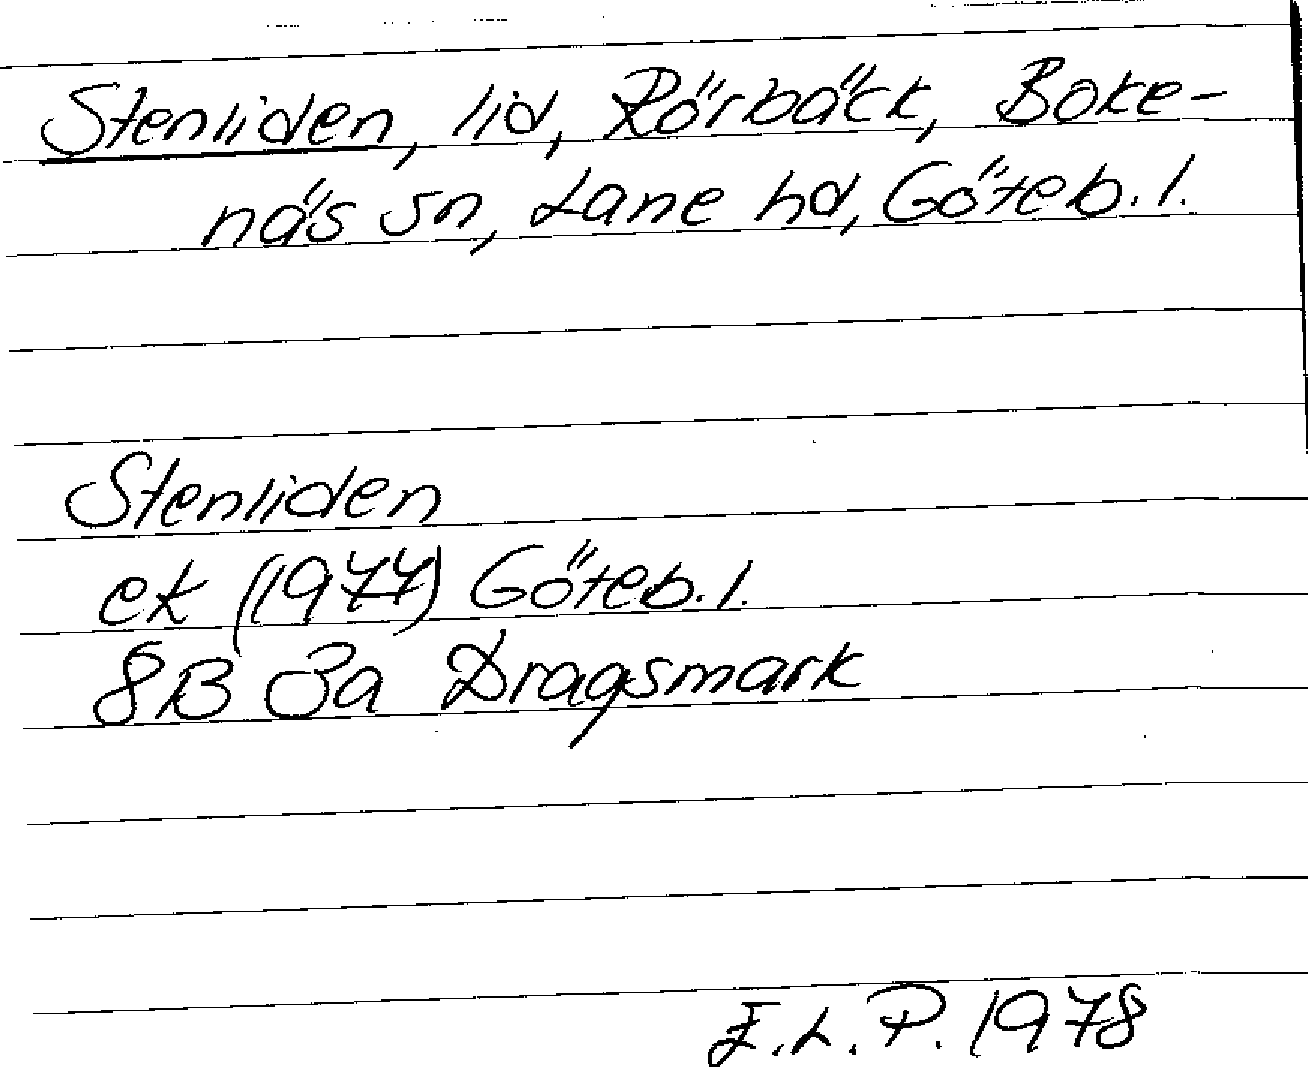 Stenliden, lid, Rörbäck, Boke-
näs sn, Lane hd, Göteb. l.
Stenliden
ek (1977) Göteb. l.
8B 3a Dragsmark
E.L.P. 1978